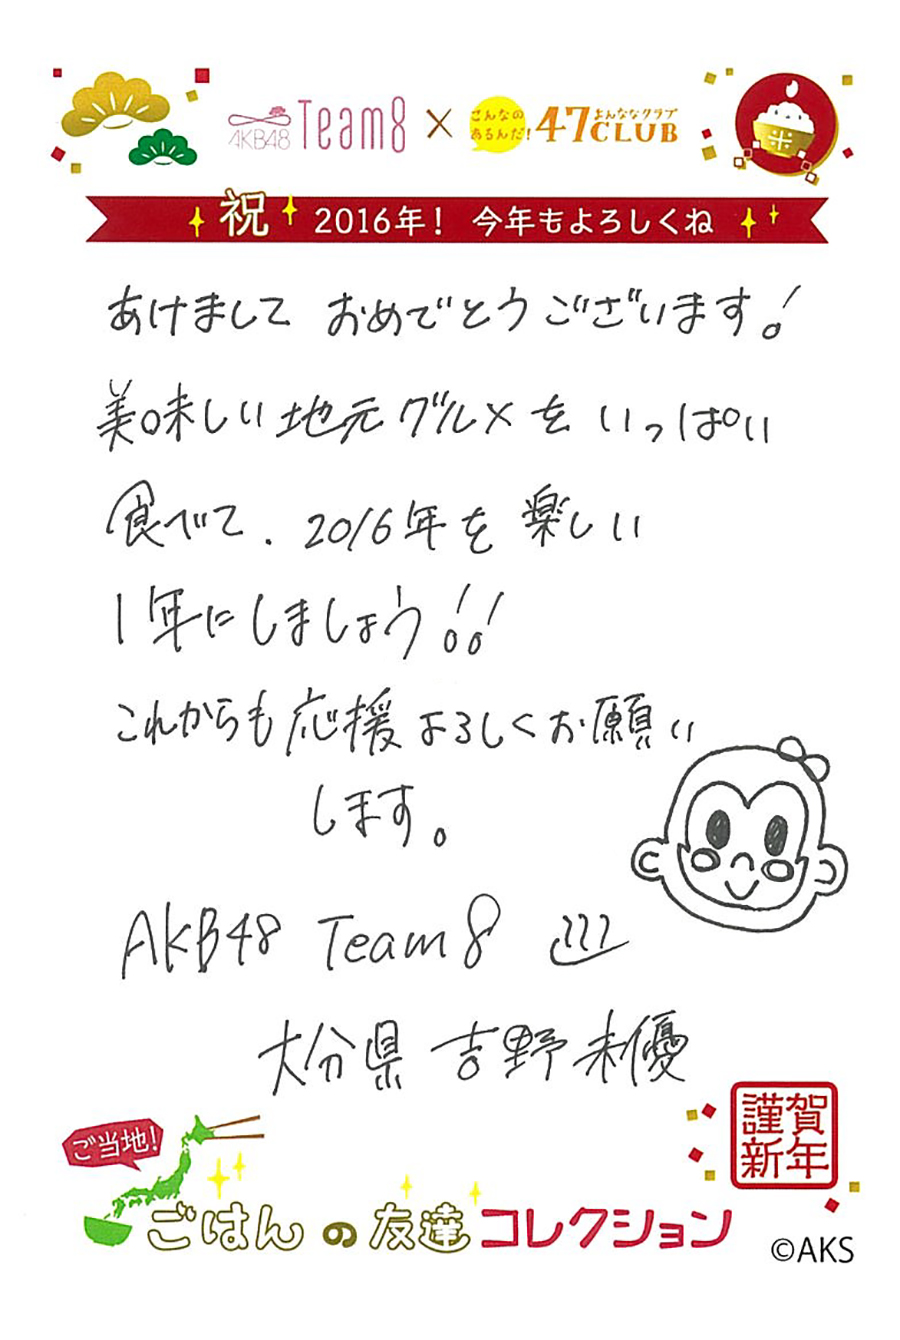 AKB48 Team8 × こんなの あるんだ! 47CLUB よんななクラブ
米
祝 2016年! 今年もよろしくね
あけまして おめでとうございます!
美味しい地元グルメをいっぱい
食べて、2016年を楽しい
1年にしましょう!!
これからも応援よろしくお願い
します。
AKB48 Team8
大分県 吉野未優
謹賀
新年
ご当地!
ごはんの友達コレクション
©AKS